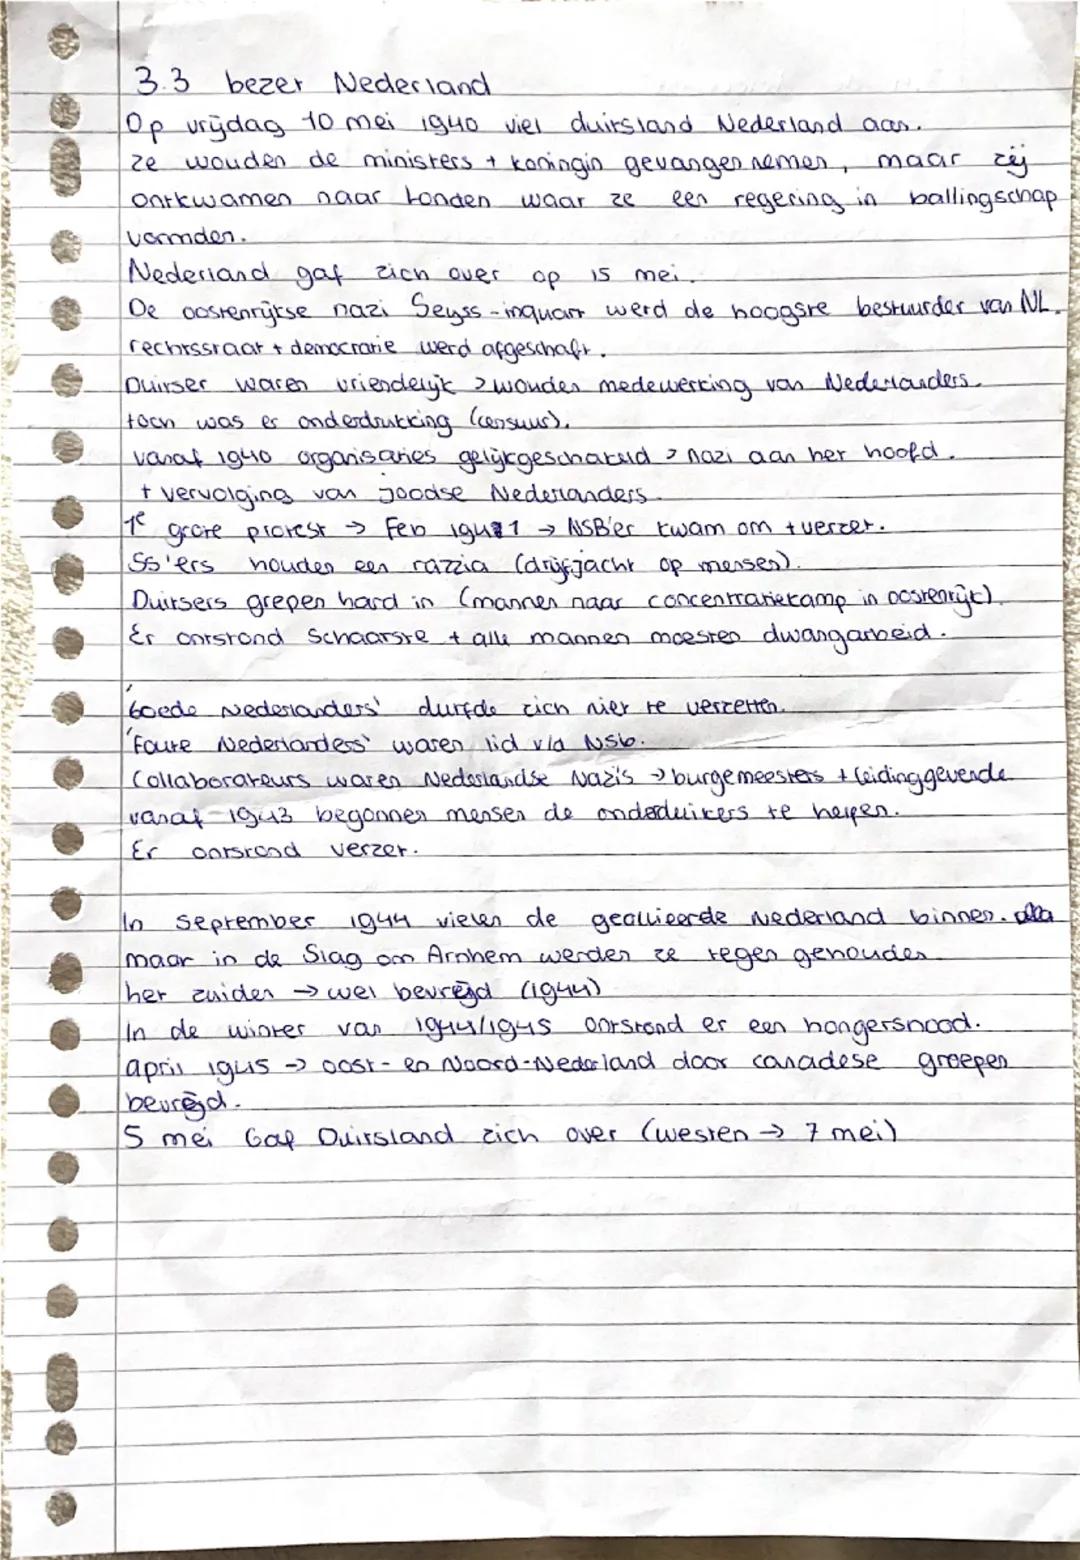 3.3 bezet Nederland
Op vrijdag 10 mei 1940 viel duitsland Nederland aan.
ze wouden de ministers + koningin gevangen nemen, maar zij
ontkwamen naar Londen waar ze een regering in ballingschap
vormden.
Nederland gaf zich over op 15 mei.
De oostenrijkse nazi Seyss-inquart werd de hoogste bestuurder van NL.
rechtsstaat + democratie werd afgeschaft.
Duitser waren vriendelijk > wouden medewerking van Nederlanders.
toch was er onderdrukking (censuur).
vanaf 1940 organisaties gelijkgeschakeld > nazi aan het hoofd.
+ vervolging van Joodse Nederlanders.
1e grote protest → Feb 1941 → NSB'er kwam om + verzet.
SS'ers houden een razzia (drijfjacht op mensen).
Duitsers grepen hard in (mannen naar concentratiekamp in oostenrijk).
Er ontstond Schaarste + alle mannen moesten dwangarbeid.
'Goede Nederlanders' durfde zich niet te verzetten.
'Foute Nederlanders' waren lid v/d NSb.
Collaborateurs waren Nederlandse Nazis → burgemeesters + leidinggevende
vanaf 1943 begonnen mensen de onderduikers te helpen.
Er ontstond verzet.
In september 1944 vielen de geallieerde Nederland binnen.
maar in de Slag om Arnhem werden ze tegen gehouden
het zuiden → wel bevrijd (1944)
In de winter van 1944/1945 ontstond er een hongersnood.
april 1945 → oost- en Noord-Nederland door canadese groepen
bevrijd.
5 mei Gaf Duitsland zich over (westen → 7 mei)